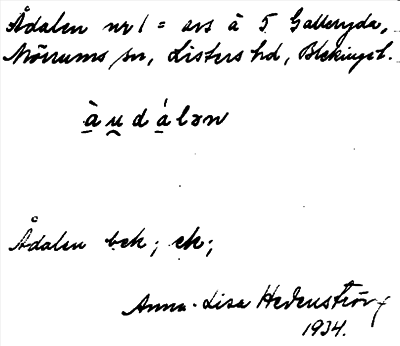 Ådalen nr 1 = avs å 5 Galleryda,
Mörrums sn, Listers hd, Blekinge l.
à̱u̯dá̱lən
Ådalen bek; ek;
Anna-Lisa Hedenström
1934.